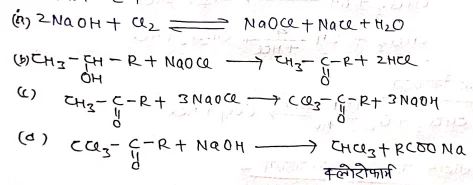 (a) 2NaOH + Cl2 ⇌ NaOCl + NaCl + H2O
(b) CH3 - CH - R + NaOCl → CH3 - C - R + 2HCl
OH O
(c) CH3 - C - R + 3NaOCl → CCl3 - C - R + 3NaOH
O O
(d) CCl3 - C - R + NaOH → CHCl3 + RCOONa
O क्लोरोफार्म